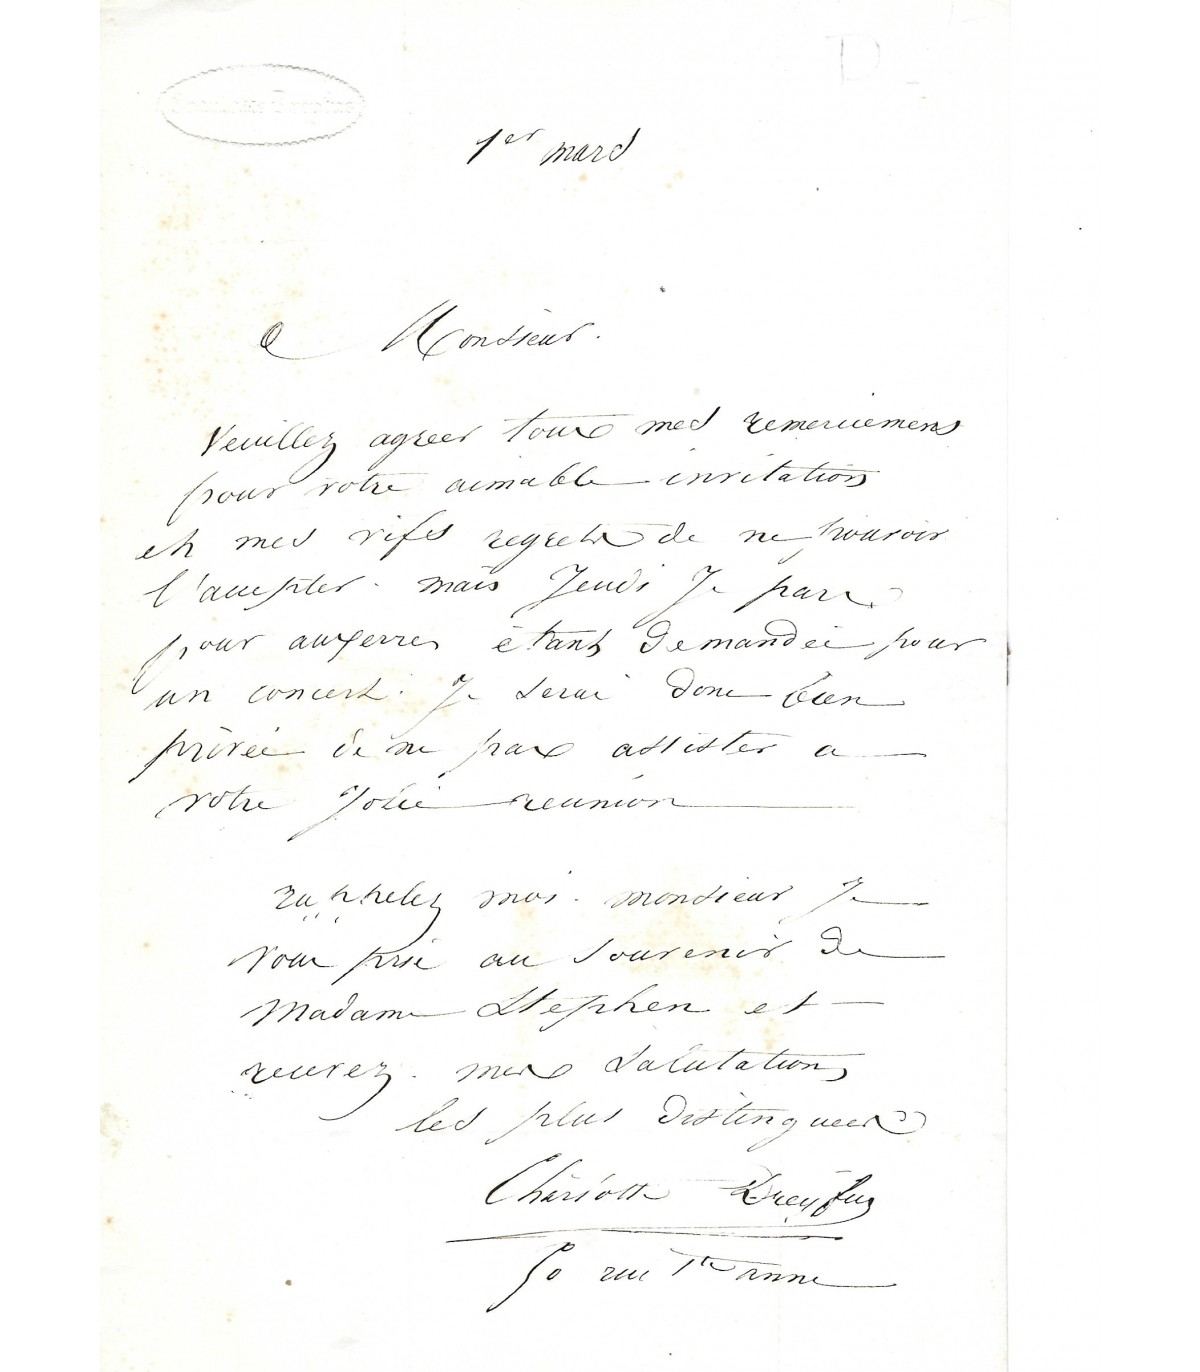 D
1er mars
Monsieur.
Veuillez agreer tous mes remerciemens
pour votre aimable invitation
et mes vifs regrets de ne pouvoir
l'accepter. mais Jeudi Je pars
pour auxerre étant demandée pour
un concert. Je serai donc bien
privée de ne pas assister a
votre Jolie reunion
rappelez moi. monsieur Je
vous prie au souvenir de
Madame Stephen et
recevez. mes salutations
les plus distinguees
Charlotte Dreyfus
50 rue Ste anne